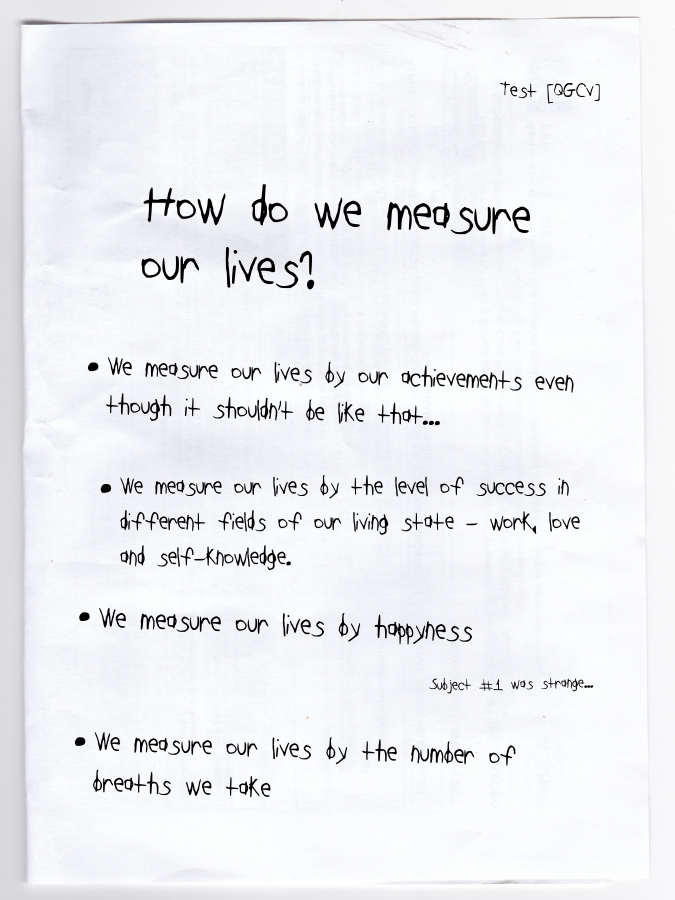 Test [QGCV]
How do we measure
our lives?
• We measure our lives by our achievements even
though it shouldn't be like that...
• We measure our lives by the level of success in
different fields of our living state - work, love
and self-knowledge.
• We measure our lives by happyness
Subject #1 was strange...
• We measure our lives by the number of
breaths we take